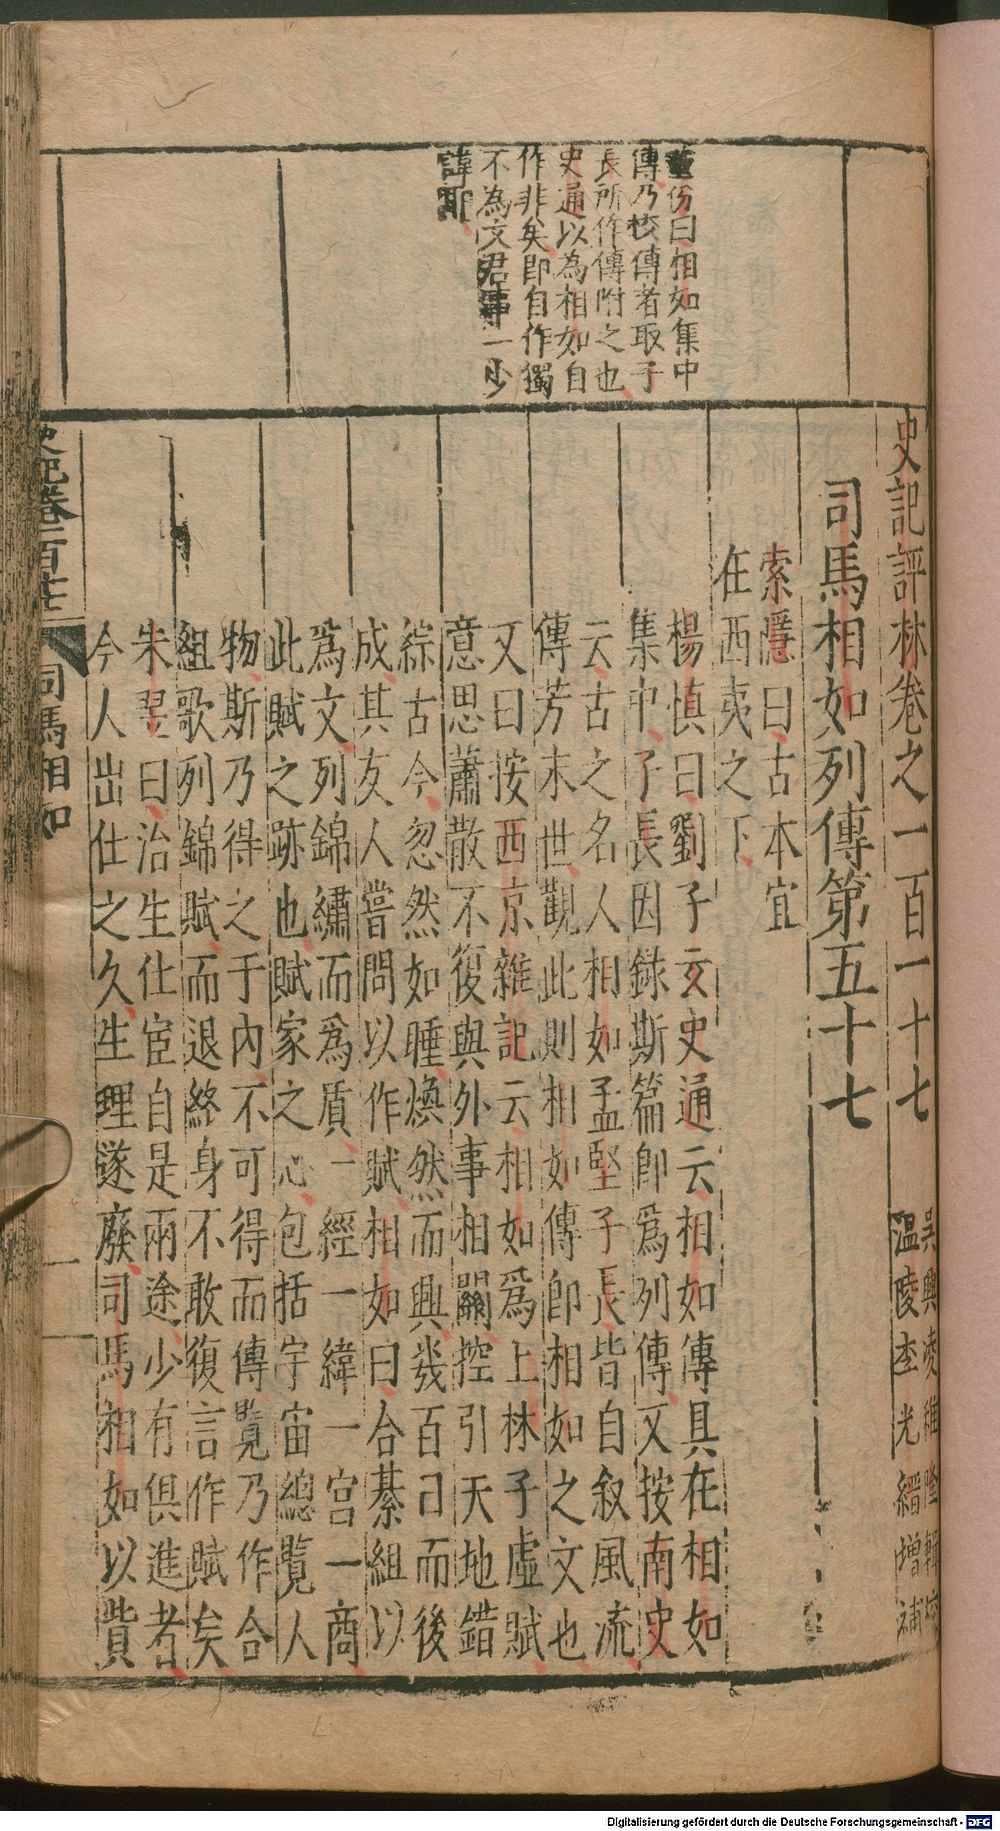 史記評林卷之一百一十七
吳興凌稚隆輯校
溫陵李光縉增補
司馬相如列傳第五十七
索隱曰古本宜
在西夷之下
楊慎曰劉子玄史通云相如傳具在相如
集中子長因錄斯篇即為列傳又按南史
云古之名人相如孟堅子長皆自叙風流
傳芳末世觀此則相如傳即相如之文也
又曰按西京雜記云相如爲上林子虛賦
意思蕭散不復與外事相關控引天地錯
綜古今忽然如睡煥然而興幾百日而後
成其友人嘗問以作賦相如曰合綦組以
爲文列錦繡而爲質一經一緯一宮一商
此賦之跡也賦家之心包括宇宙總覽人
物斯乃得之于內不可得而傳覽乃作合
組歌列錦賦而退終身不敢復言作賦矣
朱翌曰治生仕宦自是兩途少有俱進者
今人出仕之久生理遂廢司馬相如以貲
董份曰相如集中
傳乃校傳者取子
長所作傳附之也
史通以為相如自
作非矣即自作獨
不為文君事一少
諱耶
史記卷一百十七
司馬相如
一
Digitalisierung gefördert durch die Deutsche Forschungsgemeinschaft - DFG